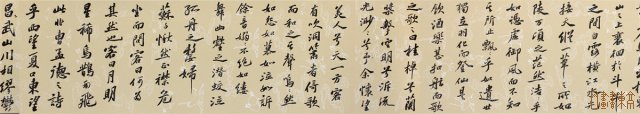 山之上裵徊於斗牛
之間白露橫江水光
接天縱一葦之所如
陵萬頃之茫然浩乎
如憑虛御風而不知
其所止飄乎如遺世
獨立羽化而登仙於是
飲酒樂甚扣舷而歌
之歌曰桂棹兮蘭
槳擊空明兮泝流
光渺兮予懷望
美人兮天一方客
有吹洞簫者倚歌
而和之其聲嗚然
如怨如慕如泣如訴
餘音嫋不絕如縷
舞幽壑之潛蛟泣
孤舟之嫠婦
蘇子愀然正襟危
坐而問客曰何為
其然也客曰月明
星稀烏鵲南飛
此非曹孟德之詩
乎西望夏口東望
昌武山川相繆鬱